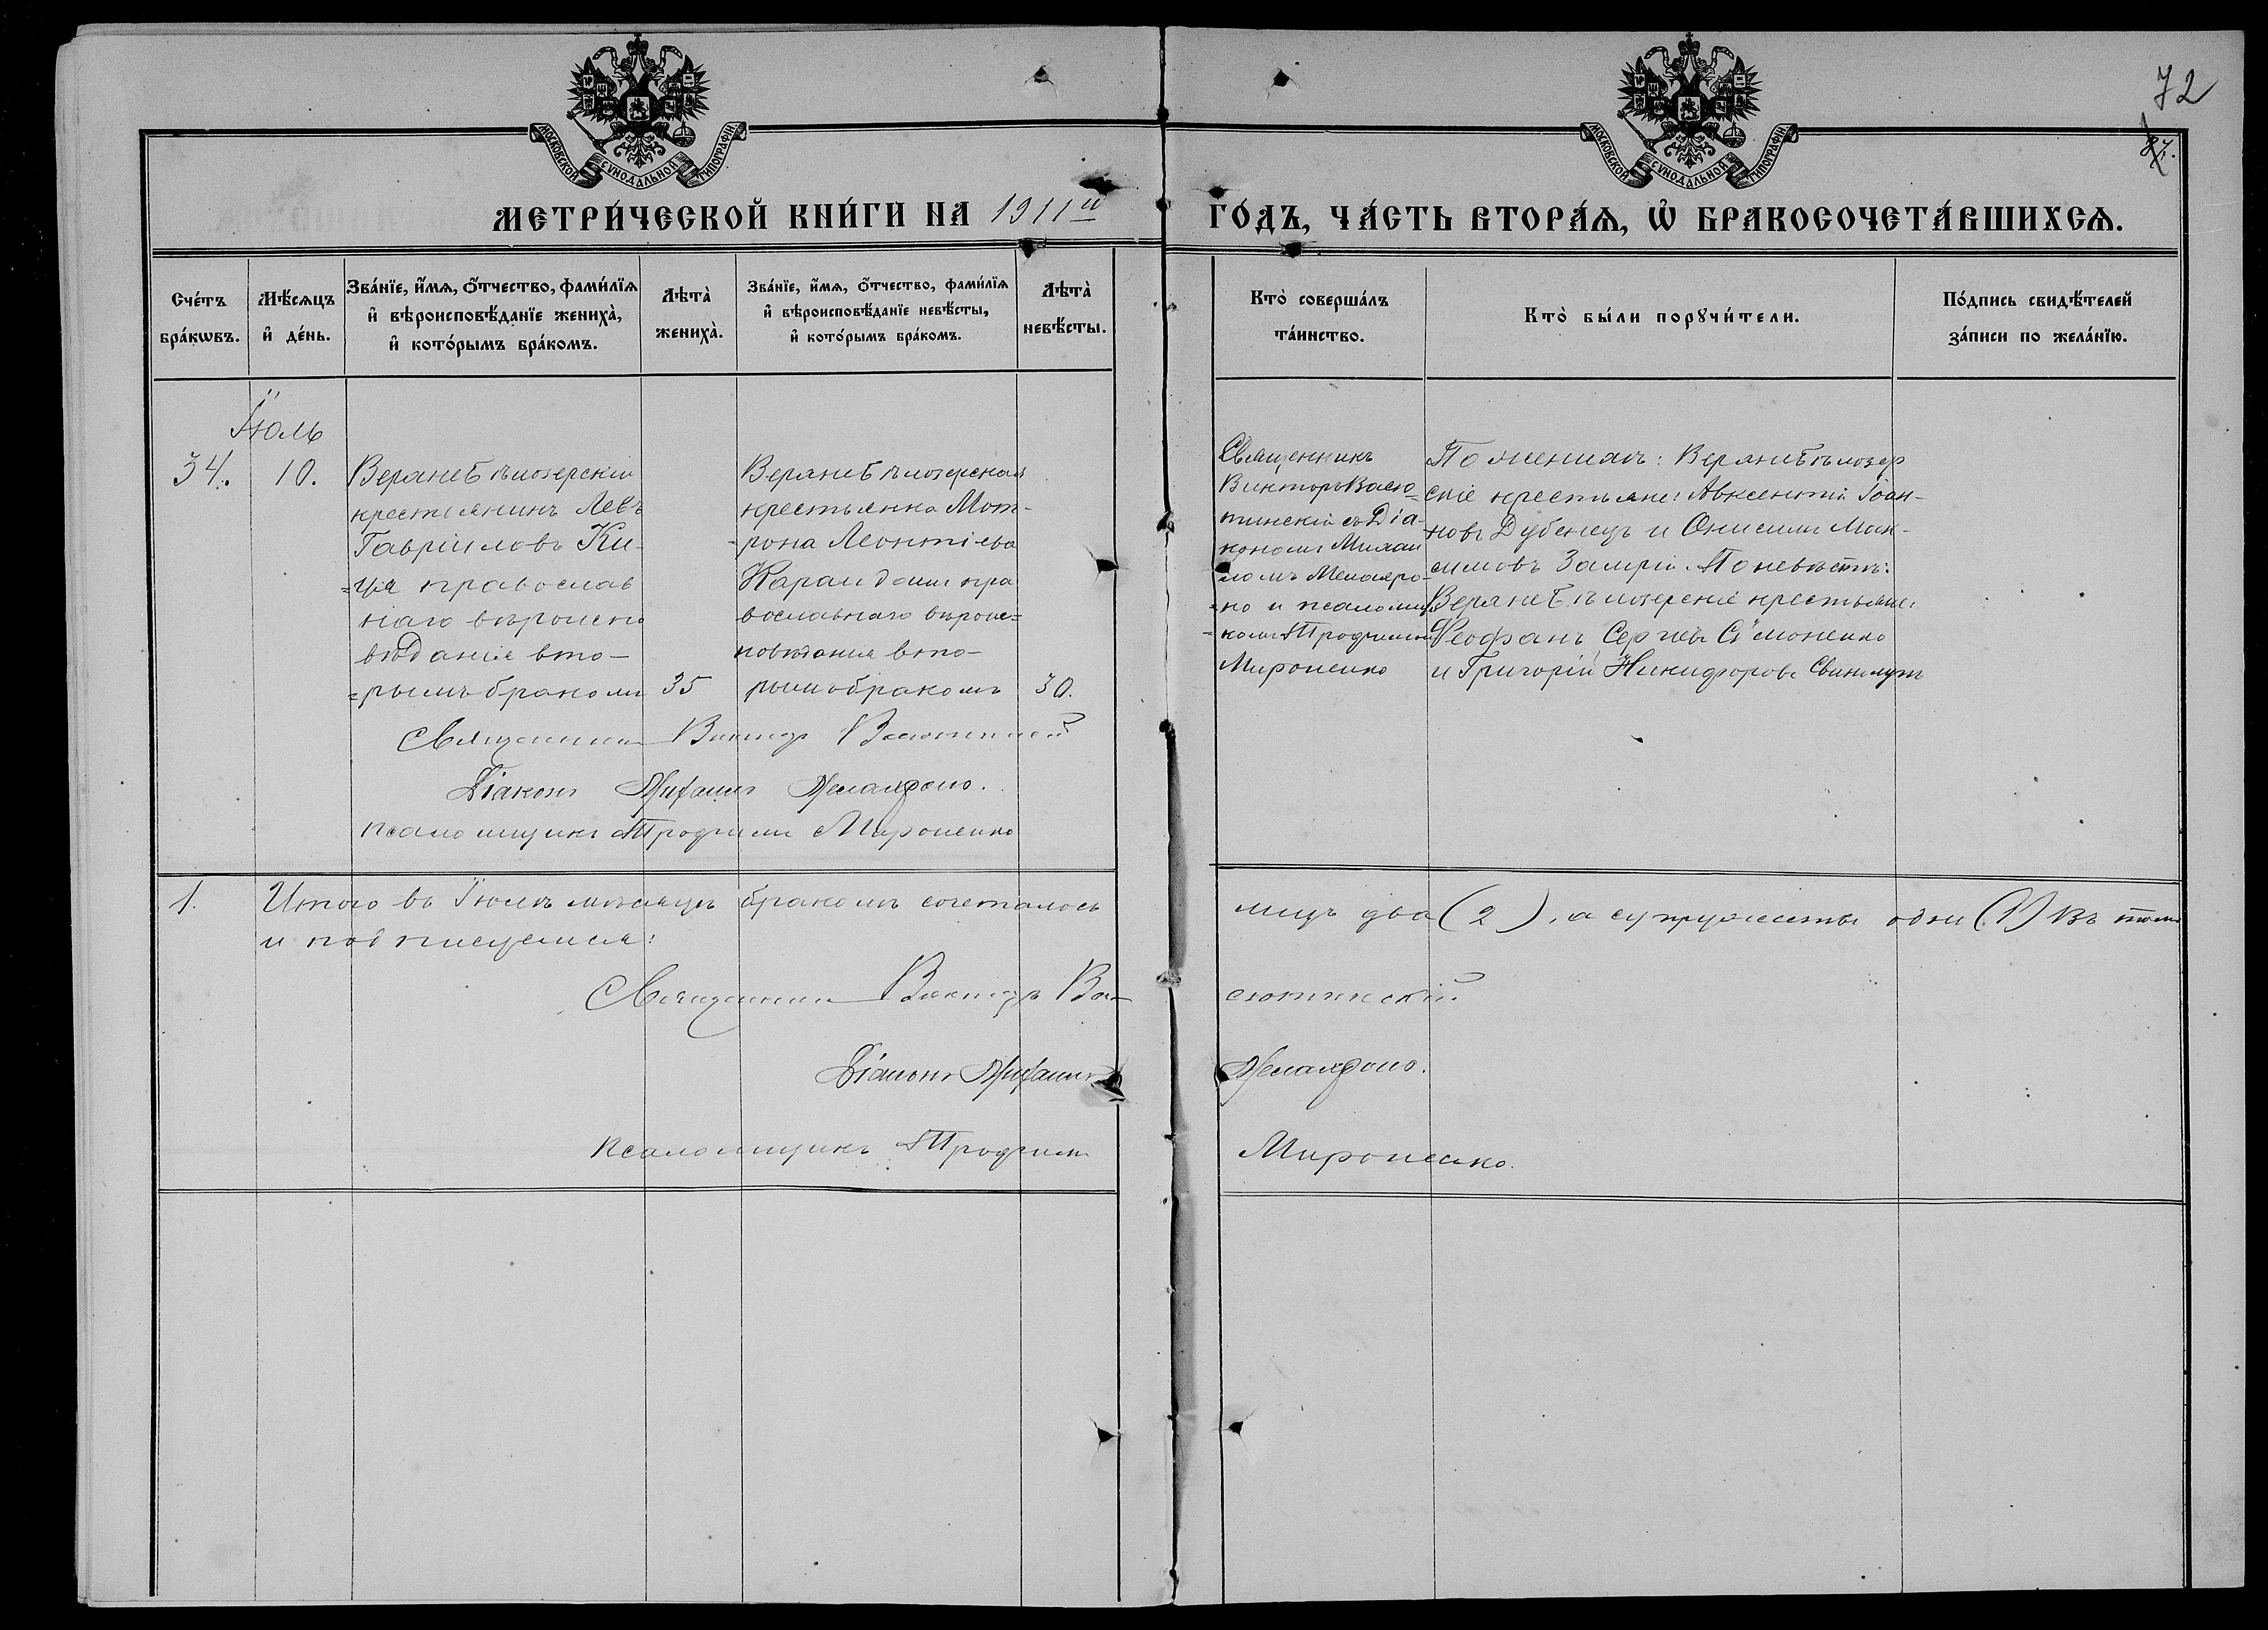 72
87.
МОСКОВСКОЙ СѴНОДАЛЬНОЙ ТИПОГРАФІИ.
МОСКОВСКОЙ СѴНОДАЛЬНОЙ ТИПОГРАФІИ.
МЕТРИ́ЧЕСКОЙ КНИ́ГИ НА 1911й ГО́ДЪ, ЧА́СТЬ ВТОРА́Ѧ, Ѡ҆ БРАКОСОЧЕТА́ВШИХСѦ.
Сче́тъ
бра́кѡвъ.
Мѣ́сѧцъ
и҆ де́нь.
Зва́нїе, и҆́мѧ, ѻ҆́тчество, фами́лїѧ
и҆ вѣроисповѣ́данїе жениха̀,
и҆ кото́рымъ бра́комъ.
Лѣта̀
жениха̀.
Зва́нїе, и҆́мѧ, ѻ҆́тчество, фами́лїѧ
и҆ вѣроисповѣ́данїе невѣ́сты,
и҆ кото́рымъ бра́комъ.
Лѣта̀
невѣ́сты.
Кто̀ соверша́лъ
та́инство.
Кто̀ бы́ли порꙋчи́тели.
По́дпись свидѣ́телей
за́писи по жела́нїю.
Іюль
34.
10.
Верхнебѣлозерскій
крестьянинъ Левъ
Гавріиловъ Ки-
=ця православ
наго вѣроиспо
вѣданія вто-
=рымъ бракомъ
35
Верхнебѣлозерская
крестьянка Мот-
-рона Леонтіева
Карандашъ пра
вославнаго вѣроис=
повѣданія вто-
рымъ бракомъ
30.
Священникъ
Викторъ Васю=
тинскій съ Діа-
кономъ Михаи
ломъ Мелахро-
=но и псаломщи
=комъ Трофимомъ
Мироненко
По женихѣ: Верхнебѣлозер
скіе крестьяне: Авксентій Іоан-
новъ Дубенецъ и Онисимъ Мак-
симовъ Замрій. По невѣстѣ:
Верхнебѣлозерскіе крестьяне:
Феофанъ Сергіевъ Симоненко
и Григорій Никифоровъ
Священникъ Викторъ Васютинскій
Діаконъ Михаилъ Мелахроно.
псаломщикъ Трофимъ Мироненко
1.
Итого въ Іюлѣ мѣсяцѣ бракомъ сочеталось лицъ два (2), а супружества одни (1) Въ томъ
и подписуемся:
Священникъ Викторъ Васютинскій
Діаконъ Михаилъ Мелахроно.
псаломщикъ Трофимъ Мироненко.